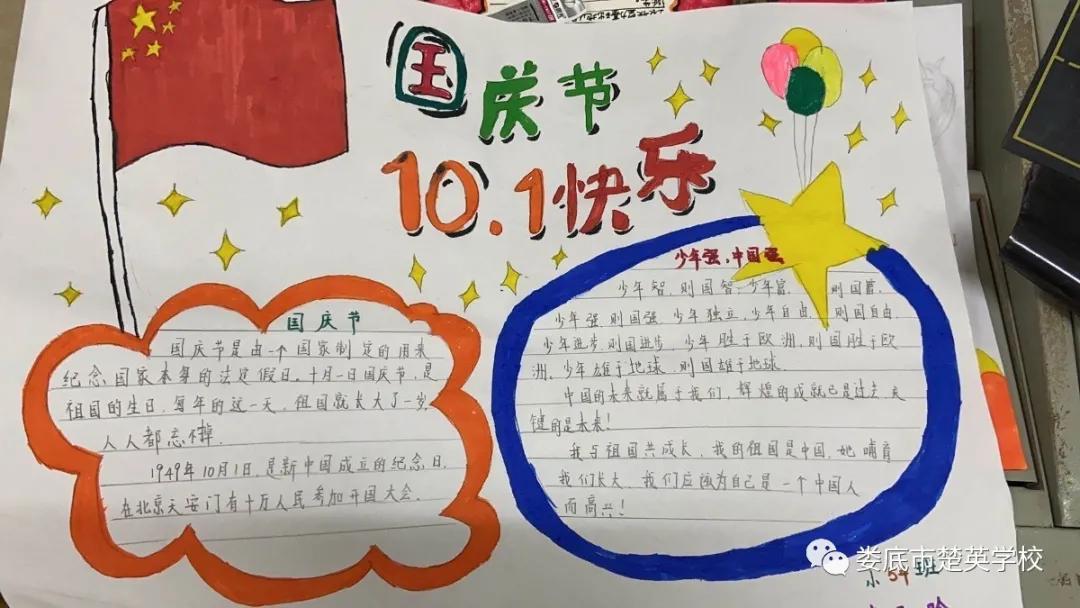 国庆节
10.1快乐
国庆节
国庆节是由一个国家制定的用来
纪念国家本身的法定假日。十月一日国庆节,是
祖国的生日,每年的这一天,祖国就长大了一岁,
人人都忘不掉.
1949年10月1日,是新中国成立的纪念日.
在北京天安门有十万人民参加开国大会.
少年强,中国强
少年智,则国智;少年富, 则国富,
少年强,则国强,少年独立,少年自由, 则国自由.
少年进步,则国进步,少年胜于欧洲,则国胜于欧
洲,少年雄于地球,则国雄于地球.
中国的未来就属于我们,辉煌的成就已是过去,关
键的是未来!
我与祖国共成长,我的祖国是中国,她哺育
我们长大,我们应该为自己是一个中国人
而高兴!
娄底市楚英学校
小54班